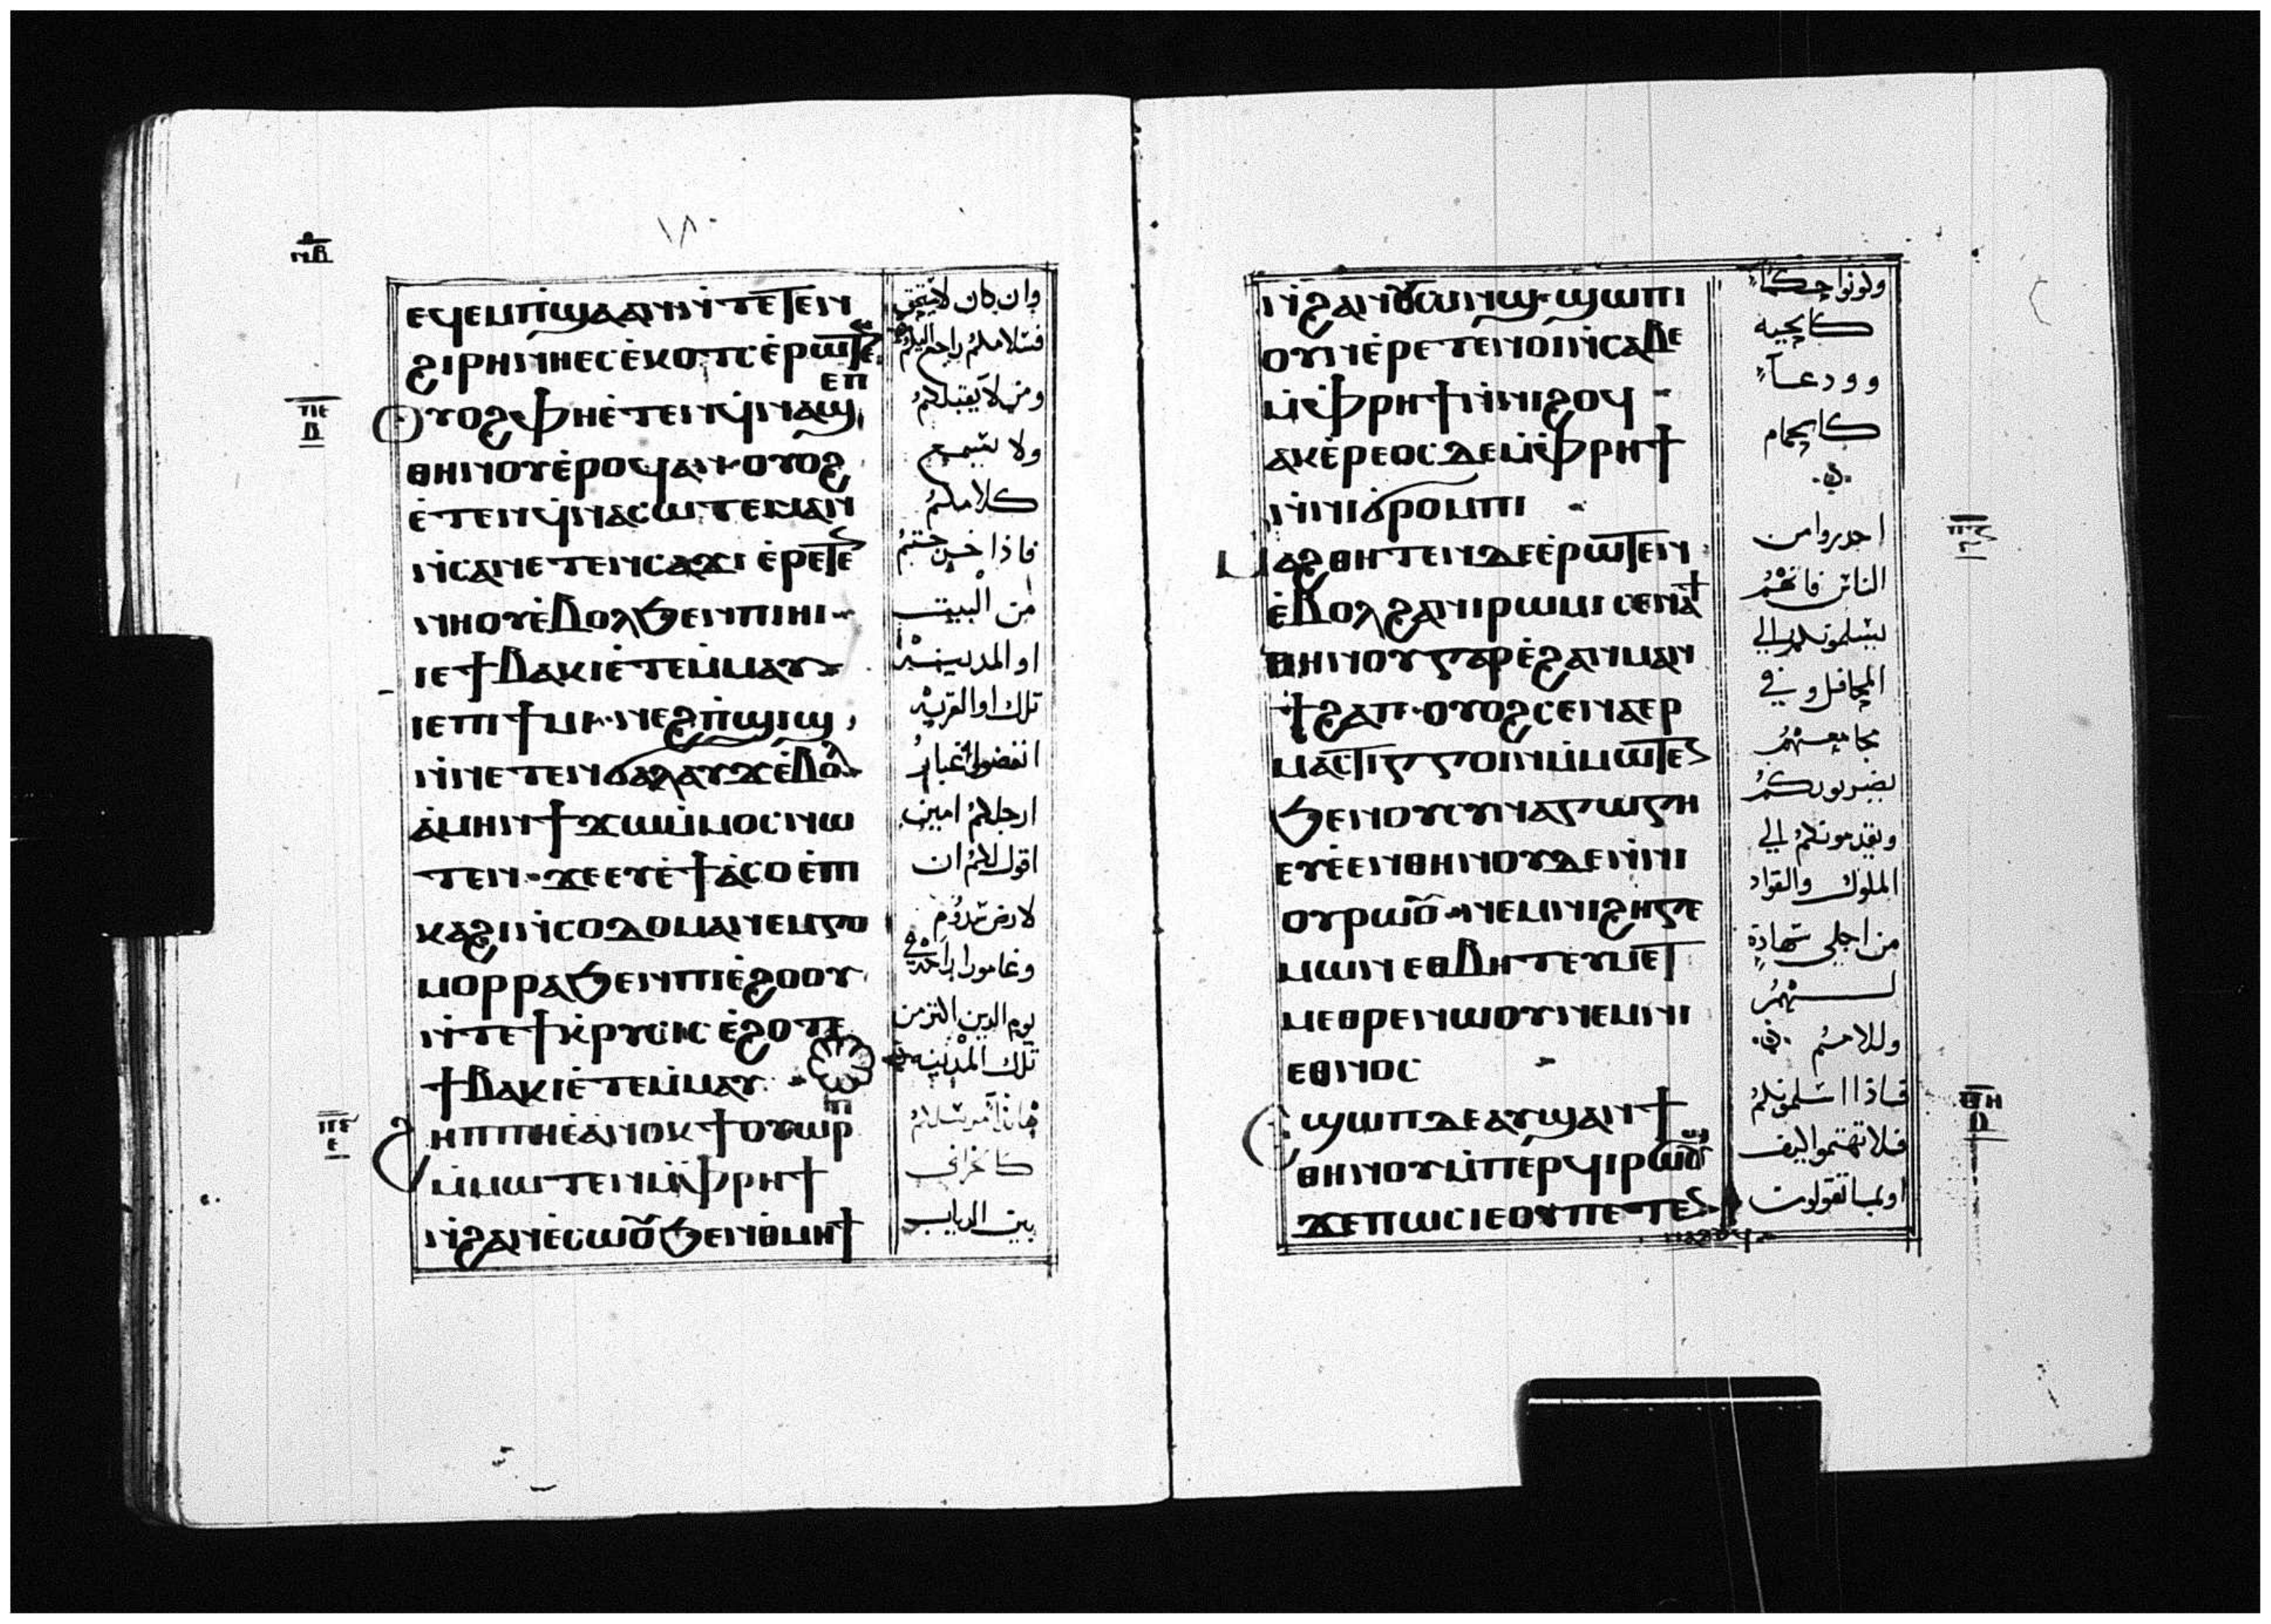 ⲙ̅ⲃ̅
١٨٠
ⲉϥⲉⲙⲡϣⲁⲁⲛ ⲛ̀ⲧⲉⲧⲉⲛ
ϩⲓⲣⲏⲛⲏ ⲉⲥⲉ̀ⲕⲟⲧⲥ ⲉ̀ⲣⲱⲧⲉ
ⲉⲡ
ⲟⲩⲟϩ ⲫⲏⲉ̀ⲧⲉⲛϥ̀ⲛⲁϣ
ⲑⲏⲛⲟⲩ ⲉ̀ⲣⲟϥ ⲁⲛ ⲟⲩⲟϩ
ⲉ̀ⲧⲉⲛϥ̀ⲛⲁⲥⲱⲧⲉⲙ ⲁⲛ
ⲛ̀ⲥⲁⲛⲉⲧⲉⲛⲥⲁϫⲓ ⲉ̀ⲣⲉⲧⲉ
ⲛⲏⲟⲩ ⲉ̀ⲃⲟⲗ ϧⲉⲛⲡⲓⲏⲓ
ⲓⲉ ϯⲃⲁⲕⲓ ⲉ̀ⲧⲉⲙ̀ⲙⲁⲩ
ⲓⲉ ⲡⲓϯⲙⲓ ⲛⲉϩⲡ̀ϣⲓϣ
ⲛ̀ⲛⲉⲧⲉⲛϭⲁⲗⲁⲩϫ ⲉ̀ⲃⲟⲗ
ⲁ̀ⲙⲏⲛ ϯϫⲱ ⲙ̀ⲙⲟⲥ ⲛⲱ
ⲧⲉⲛ ϫⲉ ⲉⲩⲉ̀ϯⲁ̀ⲥⲟ ⲉ̀ⲡ
ⲕⲁϩⲓ ⲛ̀ⲥⲟⲇⲟⲙⲁ ⲛⲉⲙ ⲅⲟ
ⲙⲟⲣⲣⲁ ϧⲉⲛⲡⲓⲉ̀ϩⲟⲟⲩ
ⲛ̀ⲧⲉϯⲕ̀ⲣⲩⲥⲓⲥ ⲉ̀ϩⲟⲧⲉ
ϯⲃⲁⲕⲓ ⲉ̀ⲧⲉⲙ̀ⲙⲁⲩ
ϩⲏⲡⲡⲏⲉ ⲁ̀ⲛⲟⲕ ϯⲟⲩⲱⲣⲡ
ⲙ̀ⲙⲱⲧⲉⲛ ⲙ̀ⲫⲣⲏϯ
ⲛ̀ϩⲁⲛⲉ̀ⲥⲱⲟⲩ ϧⲉⲛⲑ̀ⲙⲏϯ
وان كان لايستحق
فسلامكم راجع اليكم
ومن لا يقبلكم
ولا يسمع
كلامكم
فاذا خرجتم
من البيت
او المدينة
تلك او القرية
انفضوا غبار
ارجلكم امين
اقول لكم ان
لارض سدوم
وغامورا راحة في
يوم الدين اكثر من
تلك المدينه
هانذا مرسلكم
كالخراف
بين الدياب
ⲛ̀ϩⲁⲛⲟⲩⲱⲛϣ ϣⲱⲡⲓ
ⲟⲩⲛ ⲉ̀ⲣⲉⲧⲉⲛⲟⲓ ⲛ̀ⲥⲁⲃⲉ
ⲙ̀ⲫⲣⲏϯ ⲛ̀ⲛⲓϩⲟϥ
ⲁⲕⲉ̀ⲣⲉⲟⲥ ⲇⲉ ⲙ̀ⲫⲣⲏϯ
ⲛ̀ⲛⲓϭⲣⲟⲙⲡⲓ
ⲙⲁϩⲑⲏⲧⲉⲛ ⲇⲉ ⲉ̀ⲣⲱⲧⲉⲛ
ⲉ̀ⲃⲟⲗ ϩⲁⲛⲓⲣⲱⲙⲓ ⲥⲉⲛⲁϯ
ⲑⲏⲛⲟⲩ ⲅⲁⲣ ⲉ̀ϩⲁⲛⲙⲁⲛ
ϯϩⲁⲡ ⲟⲩⲟϩ ⲥⲉⲛⲁⲉⲣ
ⲙⲁⲥⲧⲓⲅⲅⲟⲓⲛ ⲙ̀ⲙⲱⲧⲉ
ϧⲉⲛⲛⲟⲩⲥⲩⲛⲁⲅⲱⲅⲏ
ⲉⲩⲉ̀ⲉⲛ ⲑⲏⲛⲟⲩ ⲇⲉ ⲛ̀ⲛⲓ
ⲟⲩⲣⲱⲟⲩ ⲛⲉⲙ ⲛⲓϩⲏⲅⲉ
ⲙⲱⲛ ⲉⲑⲃⲏⲧ ⲉⲩⲙⲉⲧ
ⲙⲉⲑⲣⲉ ⲛⲱⲟⲩ ⲛⲉⲙ ⲛⲓ
ⲉⲑⲛⲟⲥ
ⲉϣⲱⲡ ⲇⲉ ⲁⲩϣⲁⲛϯ
ⲑⲏⲛⲟⲩ ⲙ̀ⲡⲉⲣϥⲓⲣⲱⲟⲩϣ
ϫⲉ ⲡⲱⲥ ⲓⲉ ⲟⲩ ⲡⲉⲧⲉ
وكونوا حكماء
كالحيه
وودعاء
كالحمام
احدروا من
الناس فانهم
يسلمونكم الي
المحافل وفي
مجامعهم
يضربونكم
ويقدمونكم الي
الملوك والقواد
من اجلي شهادة
لهم
وللامم
فاذا اسلمونكم
فلا تهتموا كيف
او بما تقولون